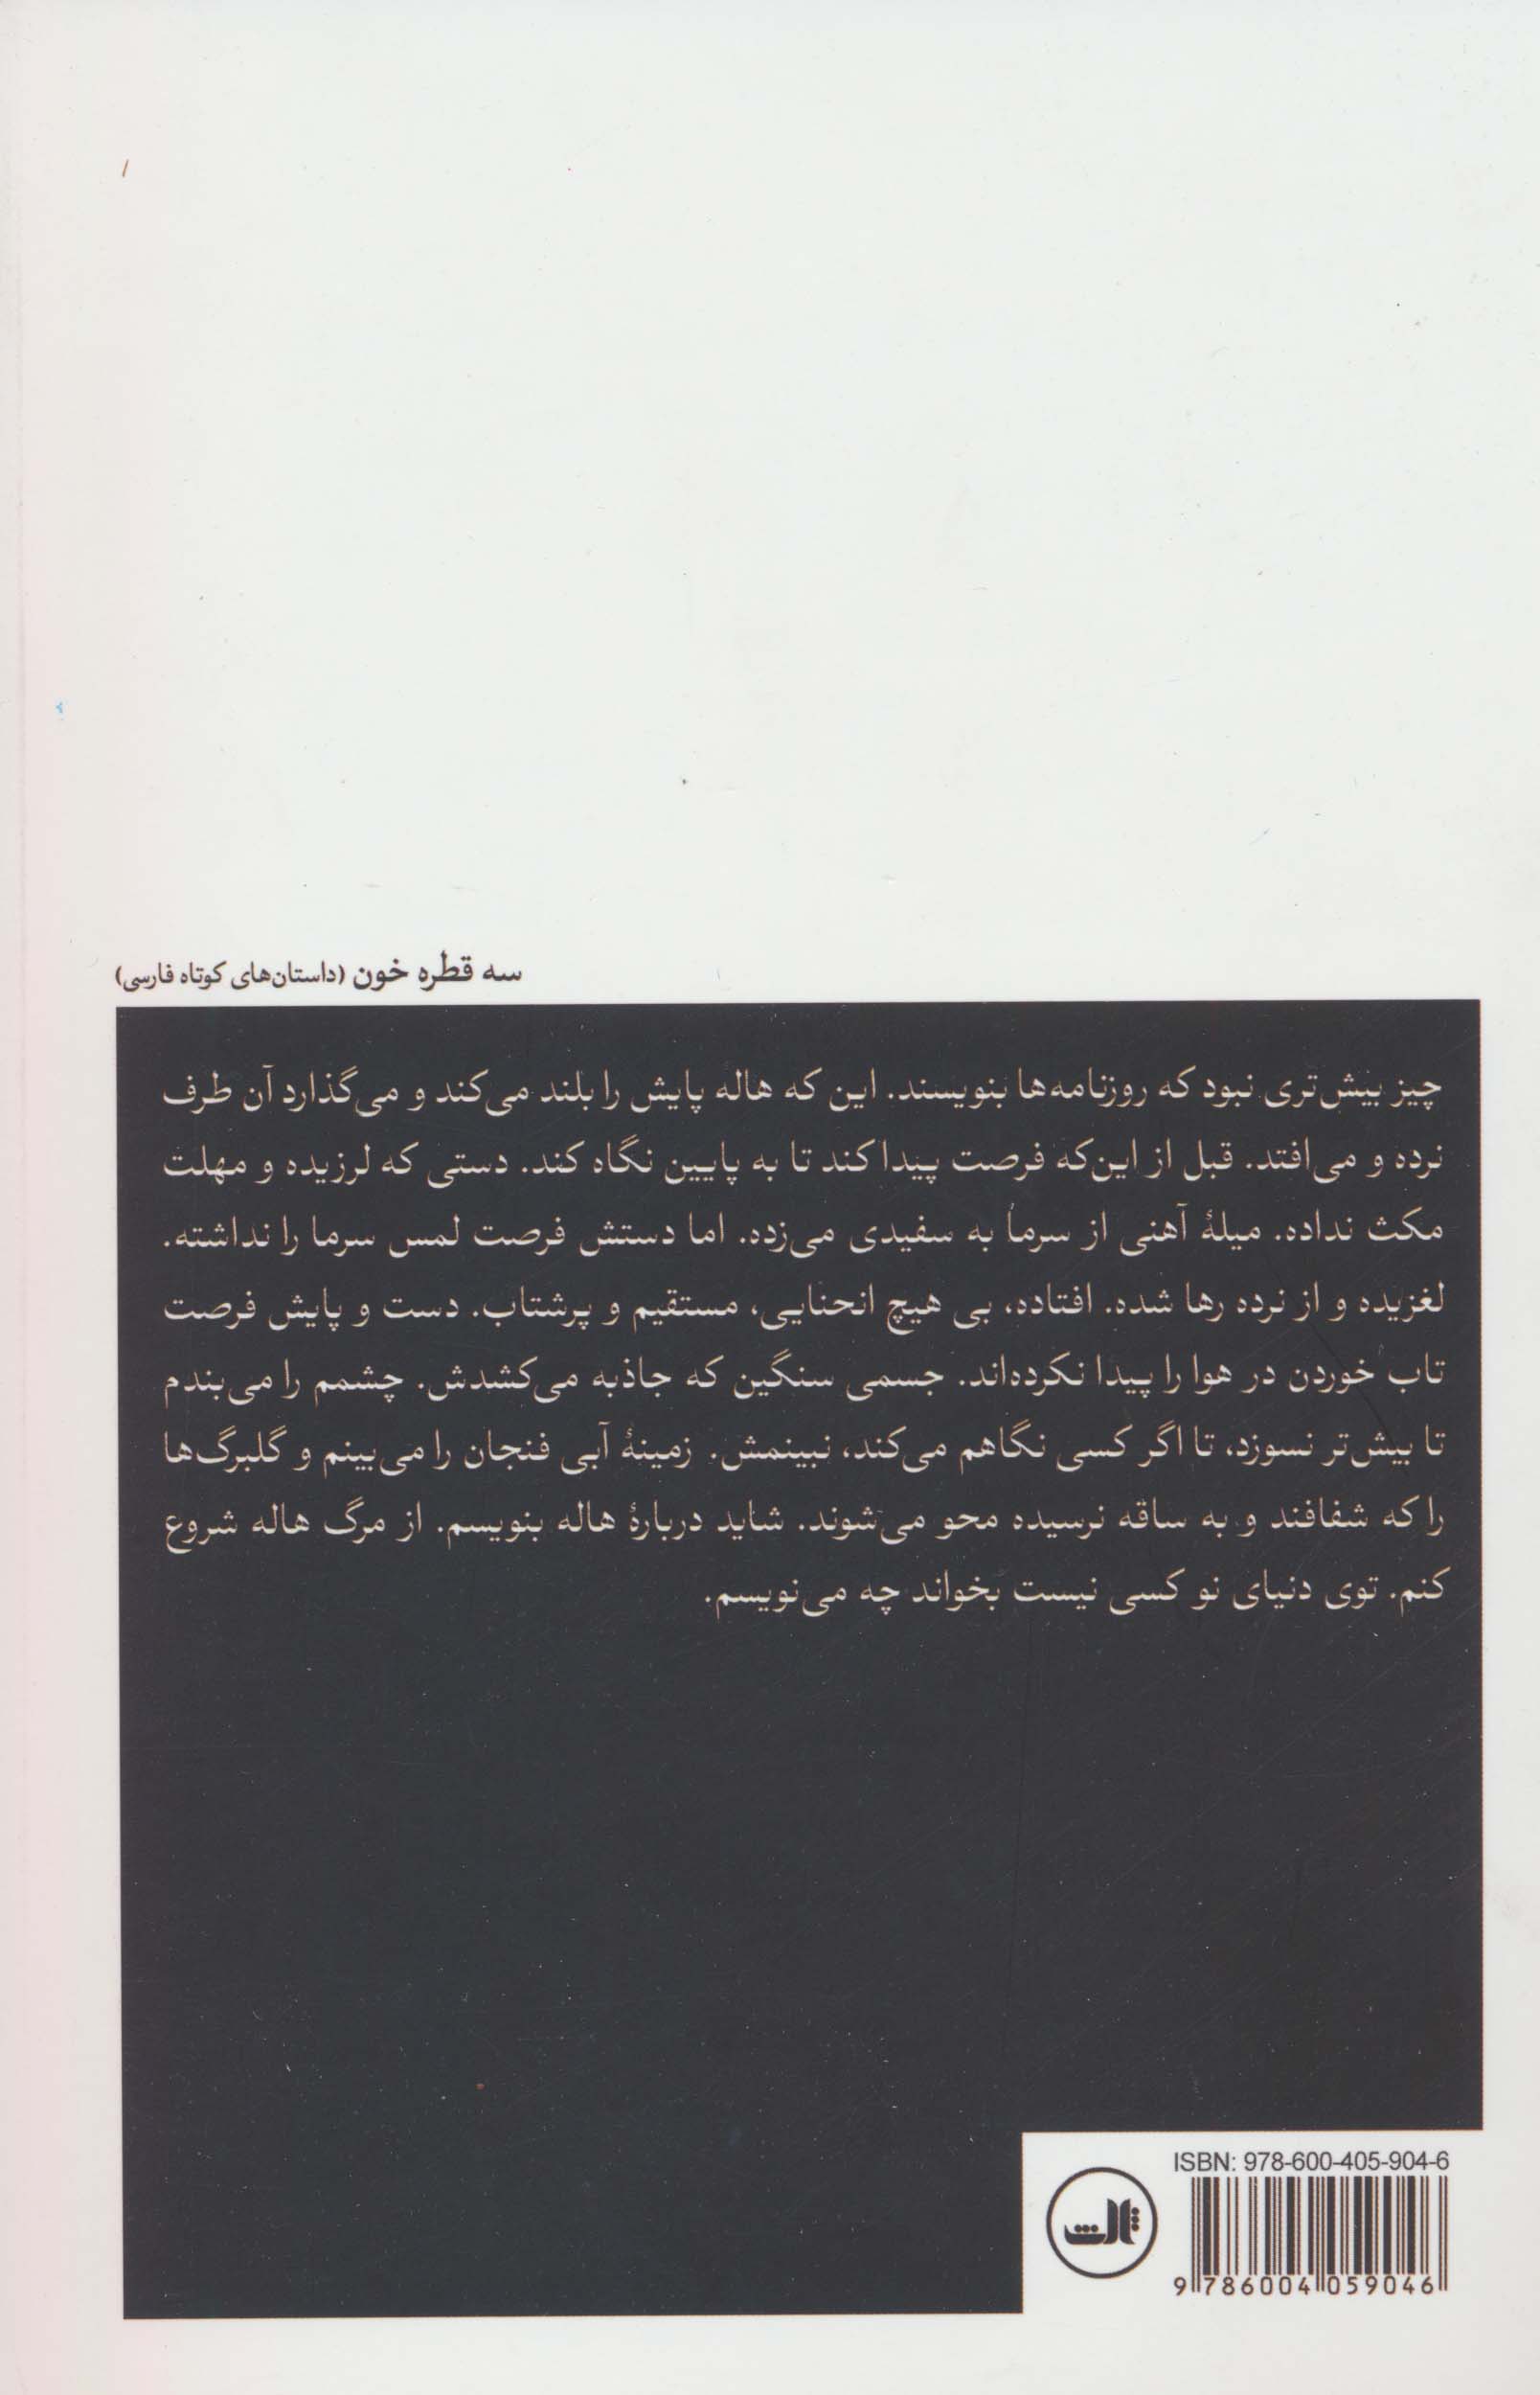 سه قطره خون (داستان‌های کوتاه فارسی)
چیز بیش‌تری نبود که روزنامه‌ها بنویسند. این که هاله پایش را بلند می‌کند و می‌گذارد آن طرف
نرده و می‌افتد. قبل از این‌که فرصت پیدا کند تا به پایین نگاه کند. دستی که لرزیده و مهلت
مکث نداده. میلهٔ آهنی از سرما به سفیدی می‌زده. اما دستش فرصت لمس سرما را نداشته.
لغزیده و از نرده رها شده. افتاده، بی هیچ انحنایی، مستقیم و پرشتاب. دست و پایش فرصت
تاب خوردن در هوا را پیدا نکرده‌اند. جسمی سنگین که جاذبه می‌کشدش. چشمم را می‌بندم
تا بیش‌تر نسوزد، تا اگر کسی نگاهم می‌کند، نبینمش. زمینهٔ آبی فنجان را می‌بینم و گلبرگ‌ها
را که شفافند و به ساقه نرسیده محو می‌شوند. شاید دربارهٔ هاله بنویسم. از مرگ هاله شروع
کنم. توی دنیای نو کسی نیست بخواند چه می‌نویسم.
ISBN: 978-600-405-904-6
ثالث
9 786004 059046